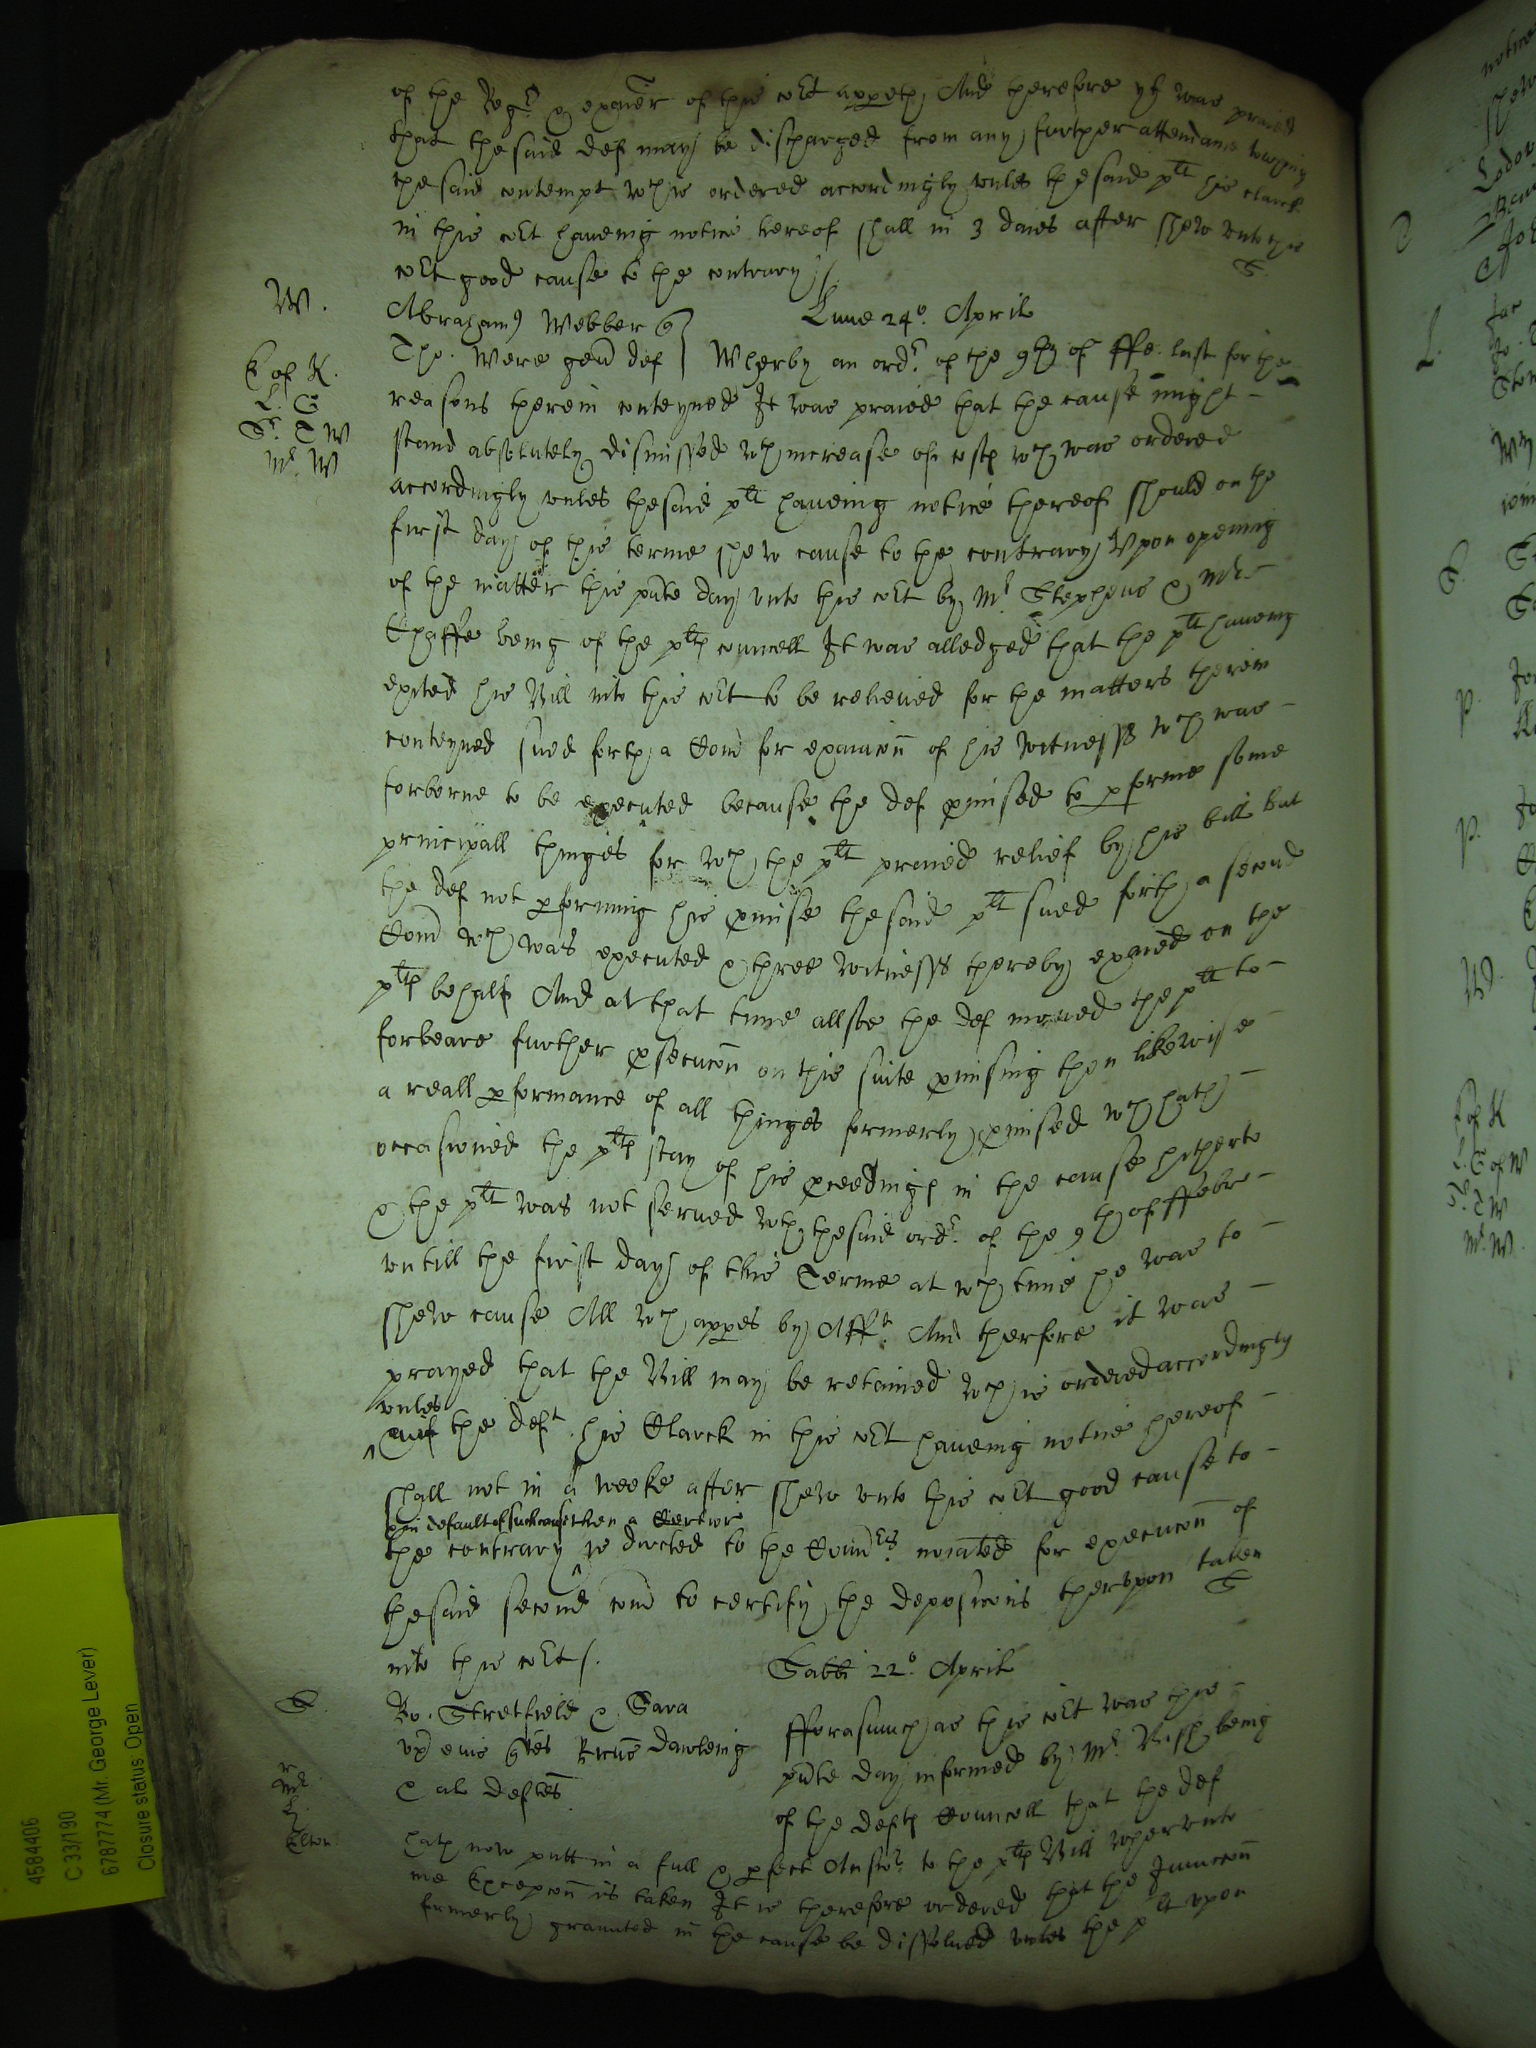 of the Reg:r & exaer of this Cort appeth And therefore yt was praied
that the said def may be discharged from any further attendance touching
the said contempt wch is ordered accordingly vnles the said plt his clarck
in this cort haueing notice hereof shall in 3 daies after shew vnto this
cort good cause to the contrary /
S
W.
Lune 24o. April
Abraham9 Webber q
Tho. Were gen def Wherby an ordr. of the 9th of ffe. last for the
C of K.
L. C
Sr. T W
Mr. W
reasons therein conteyned It was praied that the cause might
stand absolutely dismissed wth increase of costs wch was ordered
accordingly vnles the said plt haueing notice thereof should on the
first day of this terme shew cause to the contrary Vpon opening
of the matter this pnte day vnto this cort by Mr. Stephens & Mr.
Chaffe being of the plts councell It was alledged that the plt haueing
exited his Bill into this cort to be relieued for the matters therein
conteyned sued forth a Com for exaicon of his witnesses wch was
forborne to be executed because the def pmised to pforme some
principall thinges for wch the plt praied relief by his bill but
the def not pforming his pmise the said plt sued forth a second
Com wch was executed & three witnesses thereby exaied on the
plts behalf And at that time allsoe the def moued the plt to
forbeare further psecucon on this suite pmising then likewise
a reall pformance of all thinges formerly pmised wch hath
occasioned the plts stay of his pceedings in the cause hitherto
& the plt was not serued wth the said ordr. of the 9th of ffebr
vntill the first day of this Terme at wch time he was to
shew cause All wch appes by Afft. And therfore it was
prayed that the Bill may be retained wch is ordered accordingly
vnles
the deft. his Clarck in this cort haueing notice hereof
shall not in a weeke after shew vnto this cort good cause to
& in default of such cause then a Certiori
the contrary is directed to the Comrs. noiated for execucon of
the said second com to certify the deposicons therevpon taken
into this cort /.
S
Sabbi 22o. April
S.
Ro. Stretfield & Sara
vx eius qtes Ricus Dawleing
& als deftes
fforasmuch as this cort was this
pnte day informed by Mr. Rich being
of the defts Councell that the def
Elton
hath now putt in a full & pfect Answr. to the plts Bill whervnto
noe Excepcon is taken It is therefore ordered that the Iniuncon
formerly graunted in the cause be dissolued vnles the plt vpon
4584406
C 33/190
6787774 (Mr. George Lever)
Closure status Open